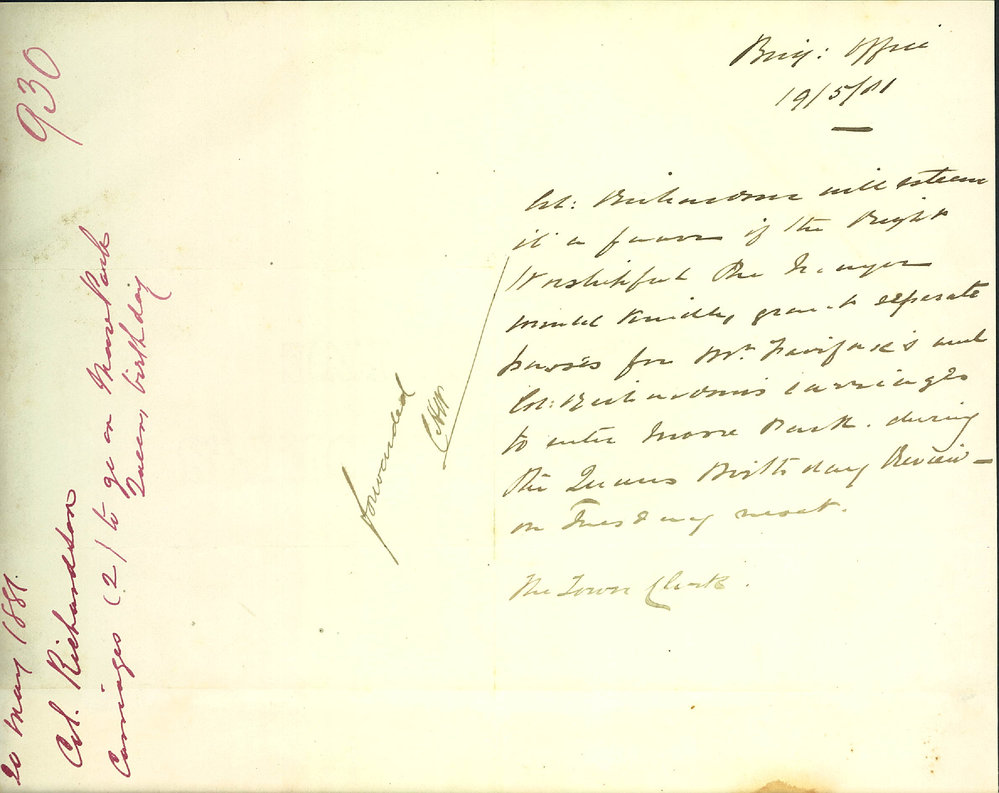 930
20 May 1881.
Col. Richardson
Carriages (2) to go on Moore Park
Queens birthday
forwarded
Brig: Office
19/5/81
Col: Richardson will esteem
it a favor if the Right
Worshipful the Mayor
would kindly grant separate
passes for Mrs Fairfax's and
Col: Richardson's carriages
to enter Moore Park. during
the Queens Birthday Review –
on Tuesday next.
The Town Clerk.